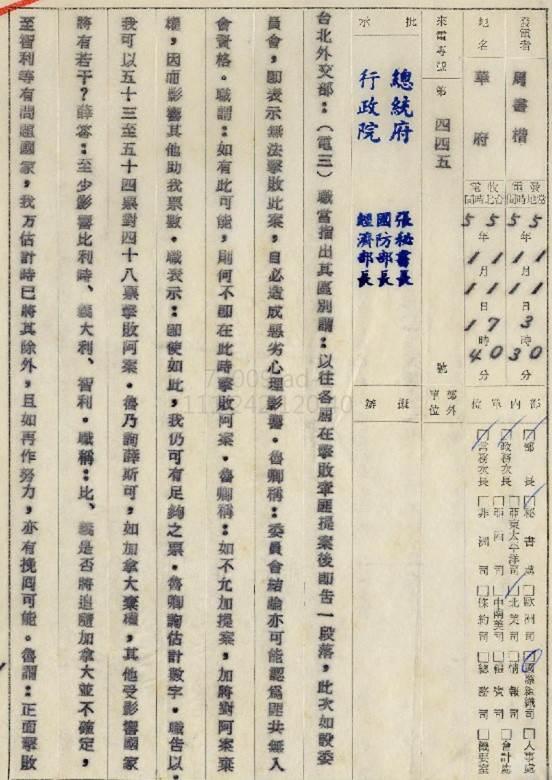 發電者 周書楷
地名 華府
發電當地時間 55年11月11日3時30分
收電台北時間 55年11月11日17時40分
來電專號 第 四四五 號
部內單位
□部長 □秘書處 □歐洲司 □國際組織司 □人事處
□政務次長 □亞東太平洋司 □北美司 □情報司 □會計處
□常務次長 □非洲司 □中南美司 □條約司 □禮賓司 □總務司 □機要室
部外單位
批示
總統府 張秘書長
行政院 國防部長
經濟部長
擬辦
台北外交部：（電三）職當指出其區別謂：以往各屆在擊敗牽匪提案後即告一段落，此次如設委
員會，即表示無法擊敗此案，自必造成惡劣心理影響。魯卿稱：委員會結論亦可能認爲匪共無入
會資格。職謂：如有此可能，則何不即在此時擊敗阿案。魯卿稱：如不允加提案，加將對阿案棄
權，因而影響其他助我票數。職表示：即使如此，我仍可有足夠之票。魯卿詢估計數字。職告以：
我可以五十三至五十四票對四十八票擊敗阿案。魯乃詢薛斯可，如加拿大棄權，其他受影響國家
將有若干？薛答：至少影響比利時、義大利、智利。職稱：比、義是否將追隨加拿大並不確定，
至智利等有問題國家，我方估計時已將其除外，且如再作努力，亦有挽回可能。魯謂：正面擊敗